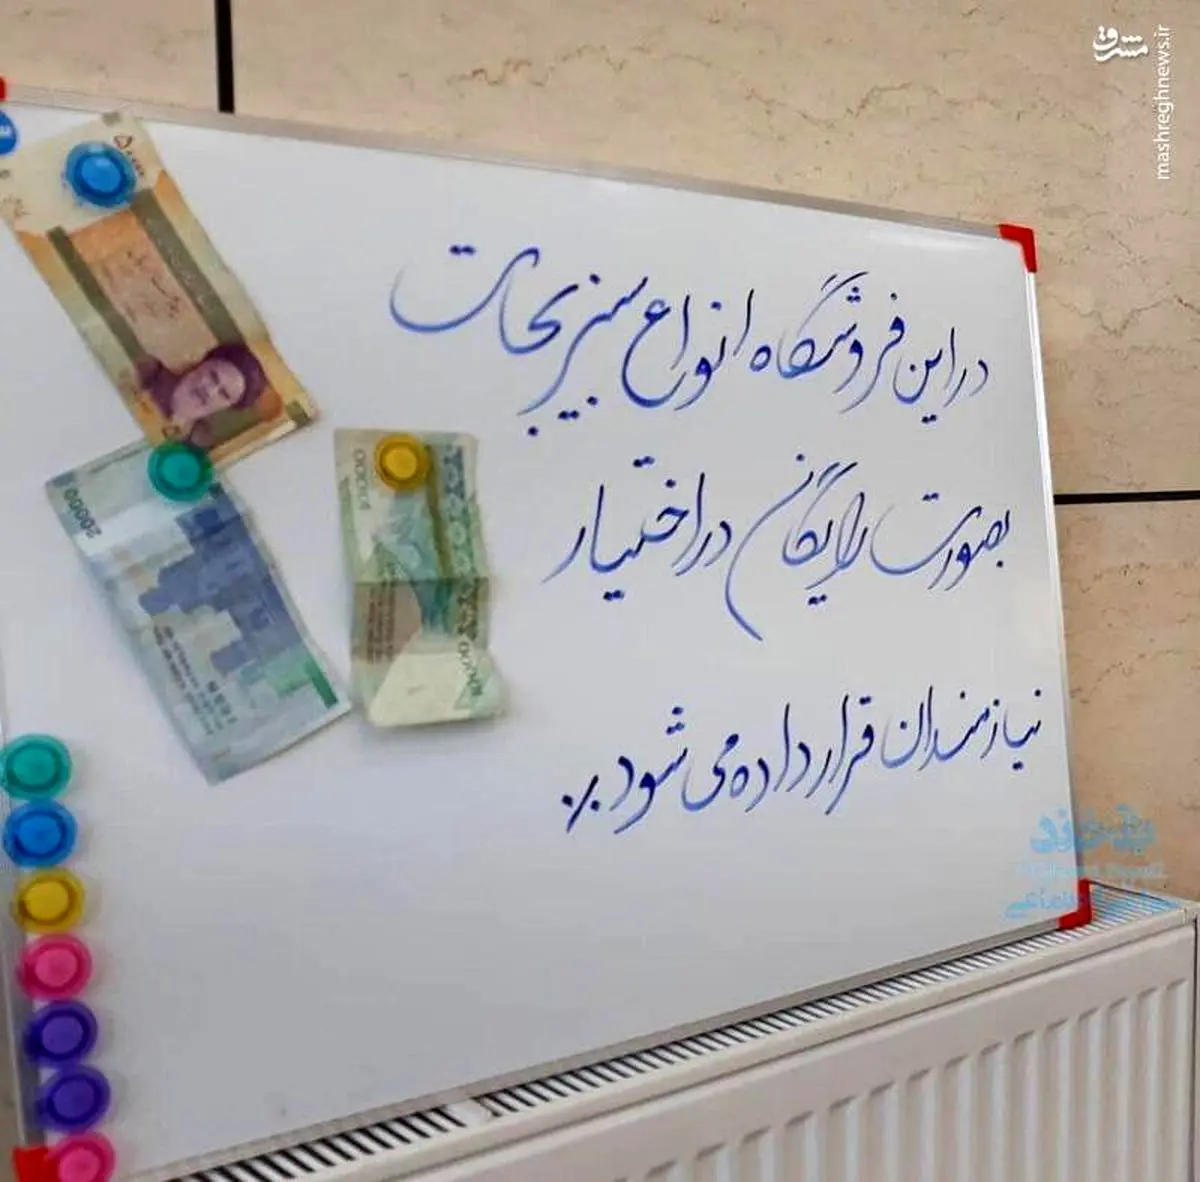 مشرق
mashreghnews.ir
در این فروشگاه انواع سبزیجات
بصورت رایگان در اختیار
نیازمندان قرار داده می شود٪
20000